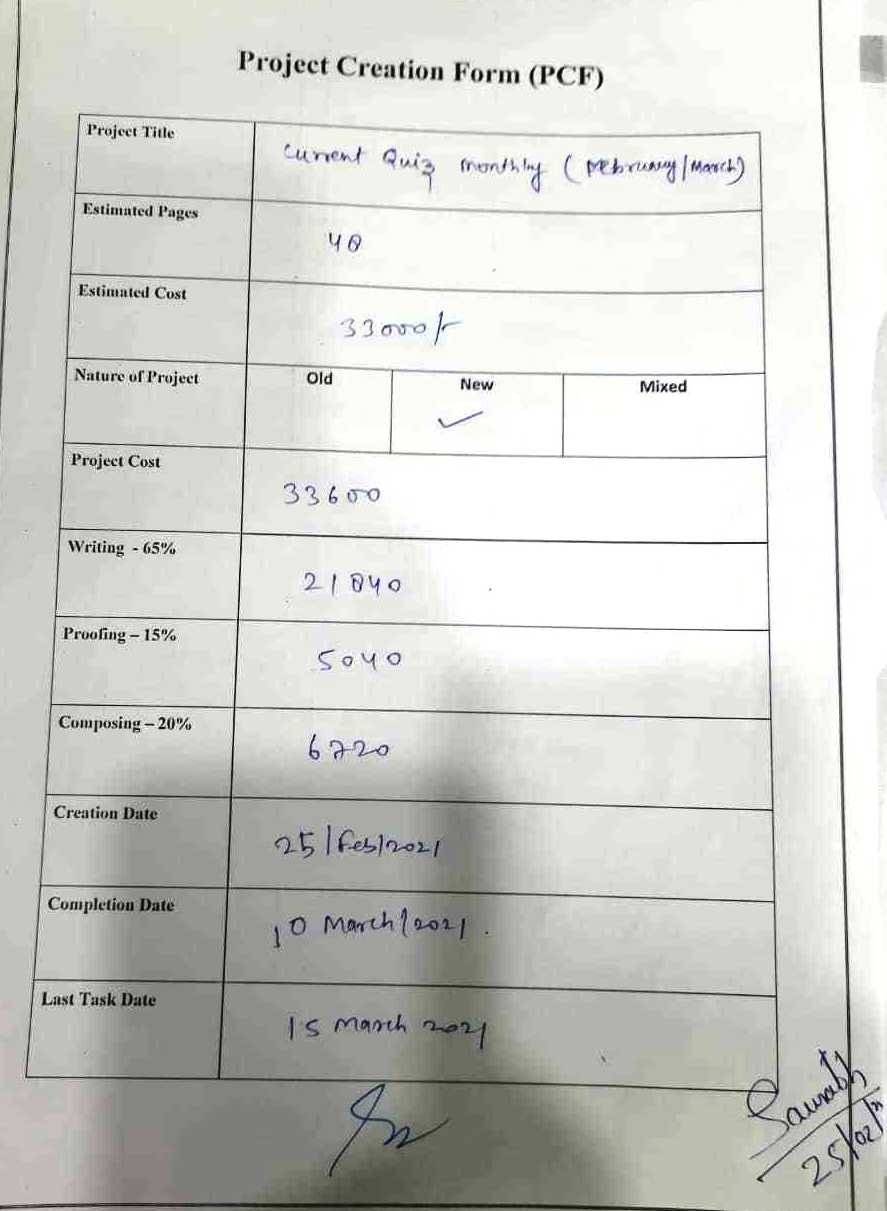 Project Creation Form (PCF)
Project Title
Current Quiz monthly (February/March)
Estimated Pages
48
Estimated Cost
33000/-
Nature of Project
Old New Mixed
✓
Project Cost
33600
Writing - 65%
21840
Proofing – 15%
5040
Composing – 20%
6720
Creation Date
25/Feb/2021
Completion Date
10 March/2021.
Last Task Date
15 March 2021
Saurabh
25/02/21